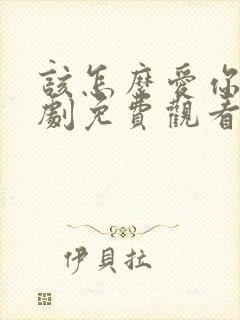 該怎麼愛你
劇免費觀看
伊貝拉